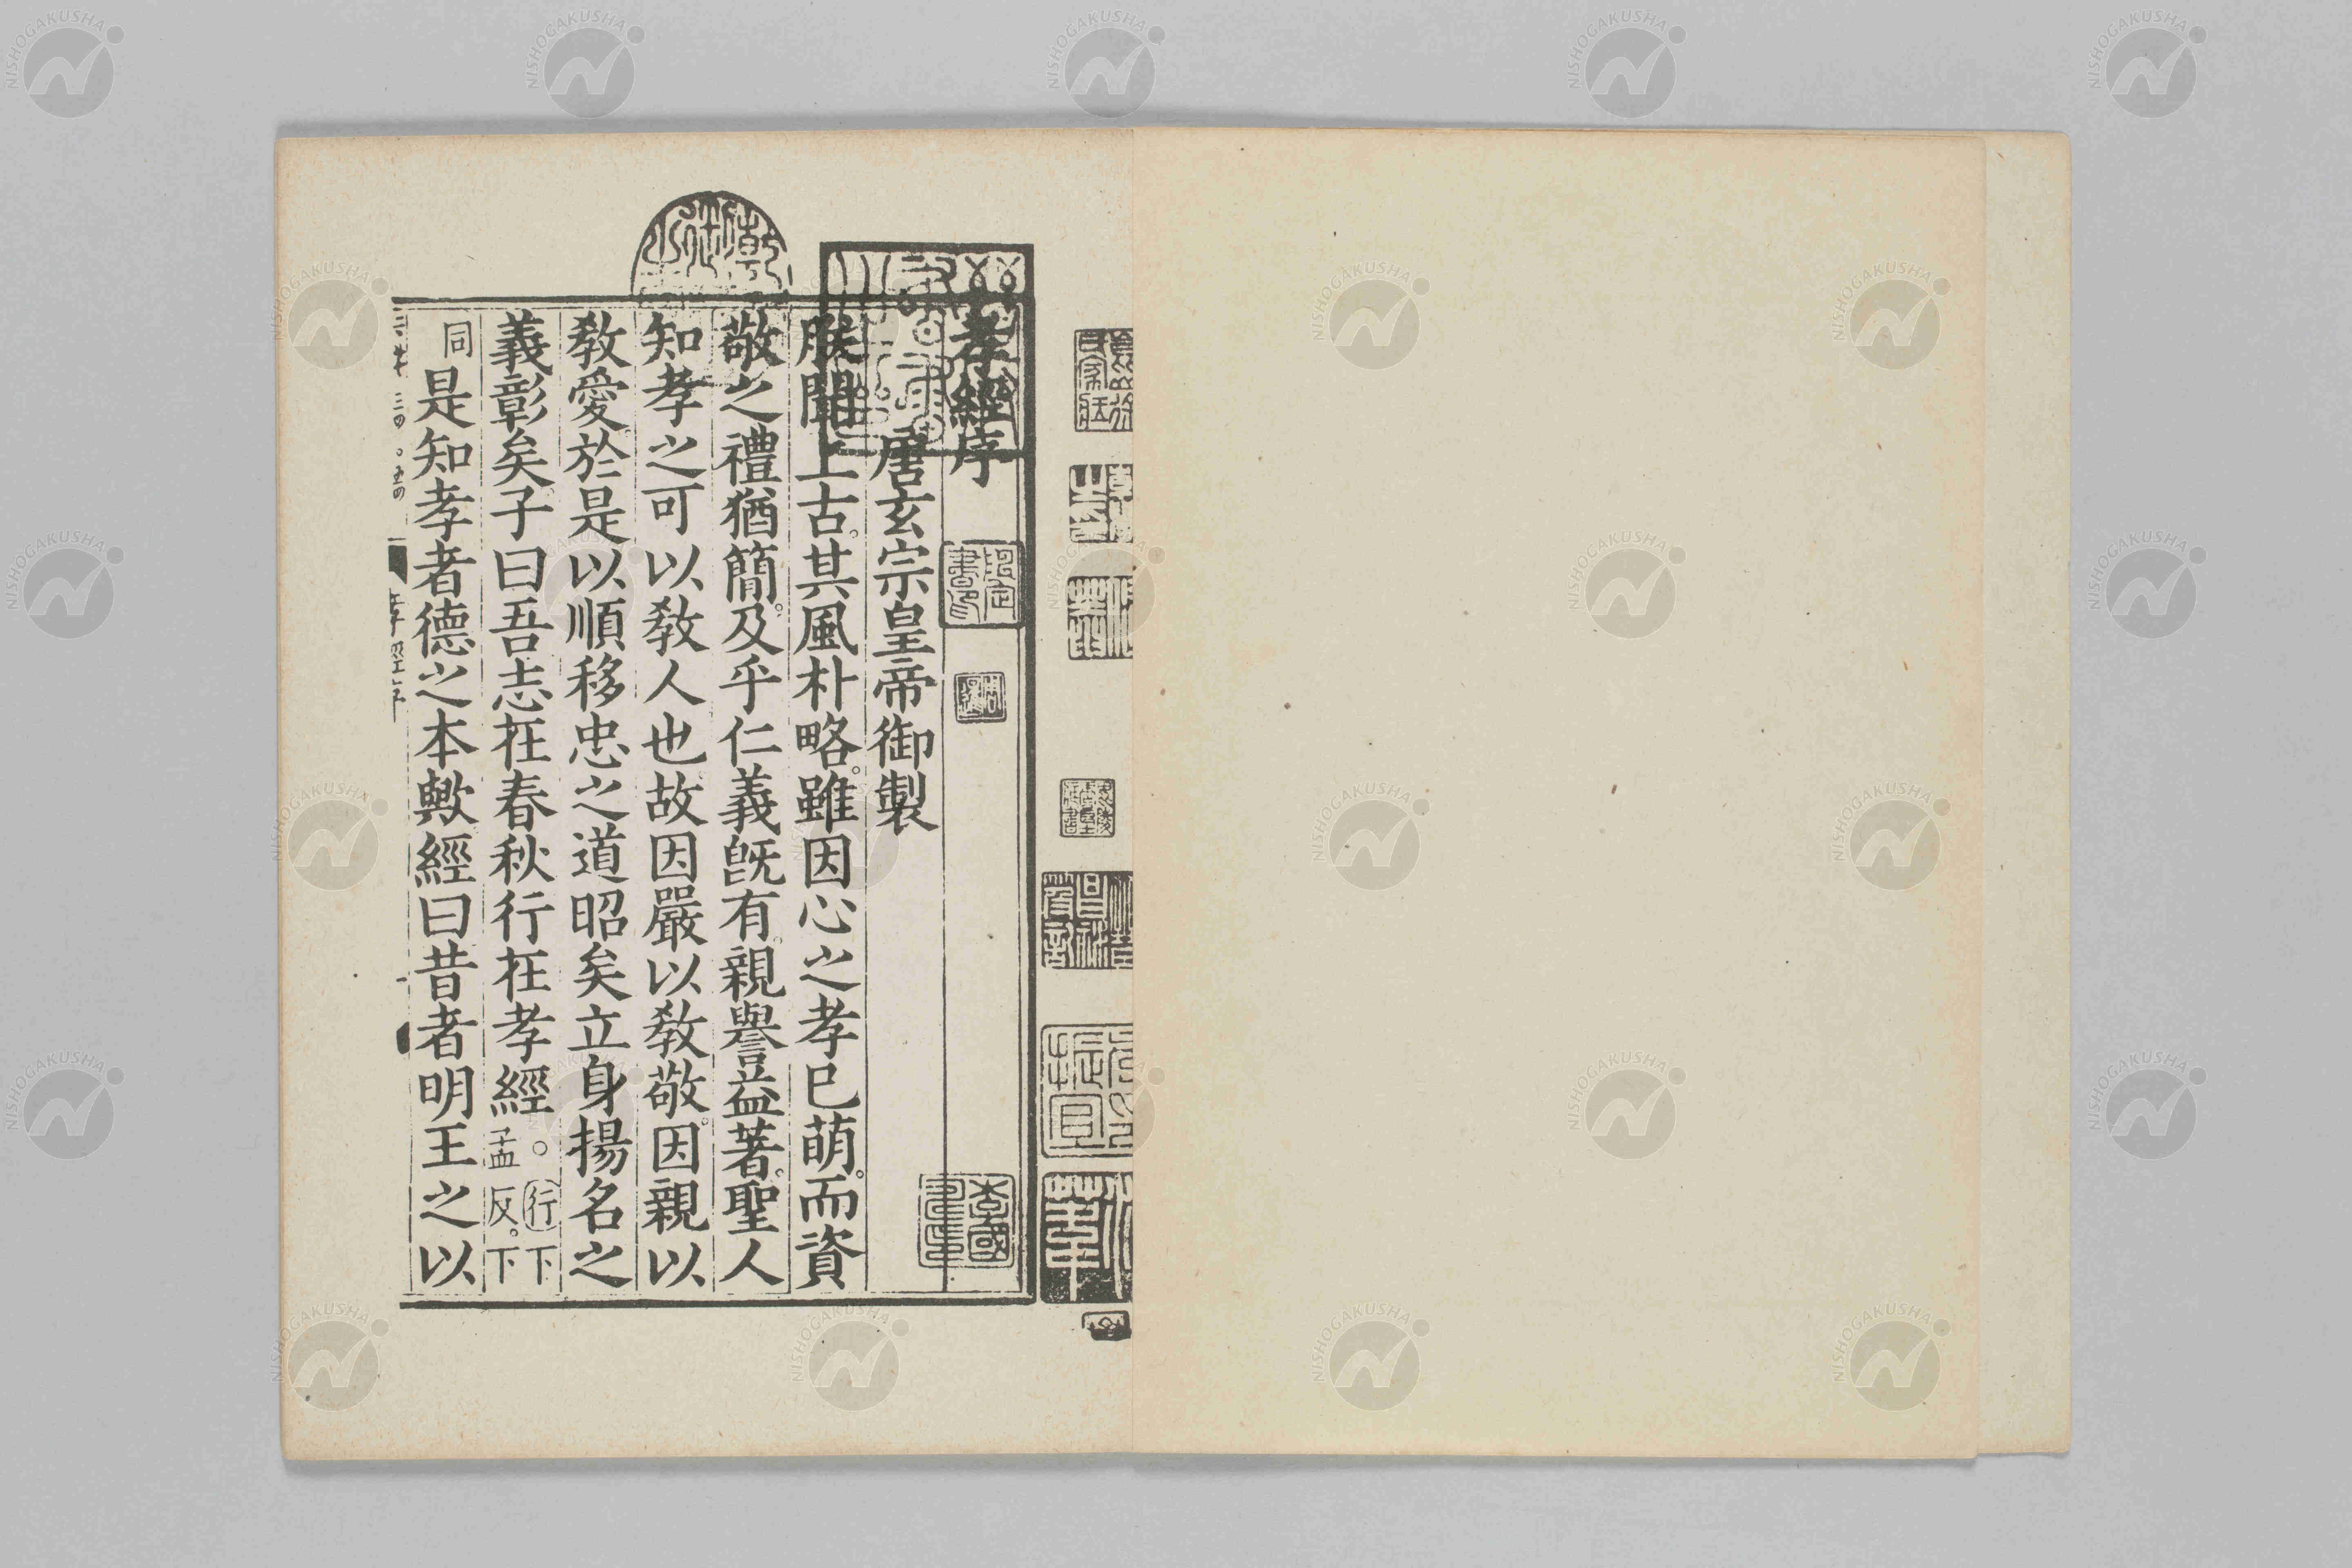 孝經序
唐玄宗皇帝御製
朕聞上古。其風朴略。雖因心之孝已萌。而資
敬之禮猶簡。及乎仁義旣有。親譽益著。聖人
知孝之可以敎人也。故因嚴以敎敬。因親以
敎愛。於是以順移忠之道昭矣。立身揚名之
義彰矣。子曰吾志在春秋行在孝經。行下孟反。下
同是知孝者德之本歟。經曰昔者明王之以
孝經序
NISHOGAKUSHA